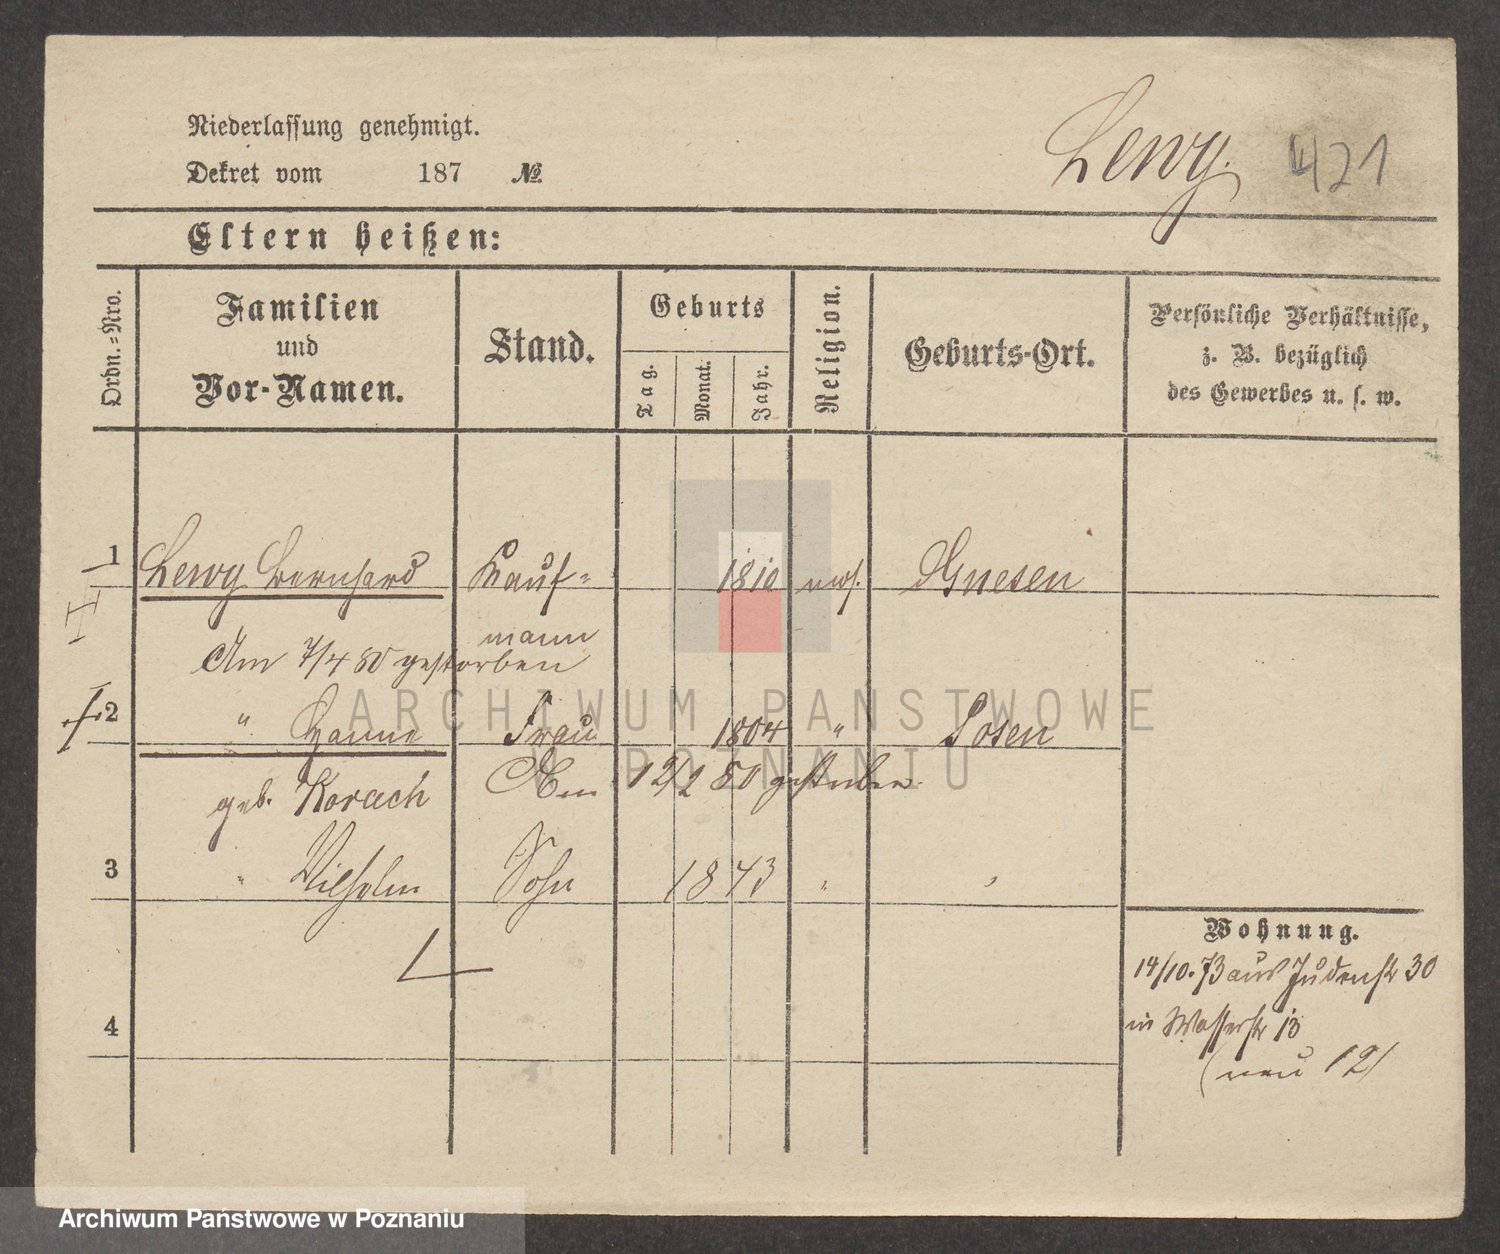 Niederlassung genehmigt.
Dekret vom 187 №
Lewy. 421
Eltern heißen:
Ordn.-Nro.
Familien
und
Vor-Namen.
Stand.
Geburts
Tag.
Monat.
Jahr.
Religion.
Geburts-Ort.
Persönliche Verhältnisse,
z. B. bezüglich
des Gewerbes u. s. w.
1 Lewy Bernhard Kauf- 1810 mos. Gnesen
mann
Am 7/4 80 gestorben
2 " Hanne Frau 1804 " Posen
geb. Korach Am 12/2 80 gestorben
3 " Wilhelm Sohn 1843 "
4
Wohnung.
14/10. 73 aus Judenstr 30
in Wasserstr 13
(neu 12)
ARCHIWUM PAŃSTWOWE
W POZNANIU
Archiwum Państwowe w Poznaniu